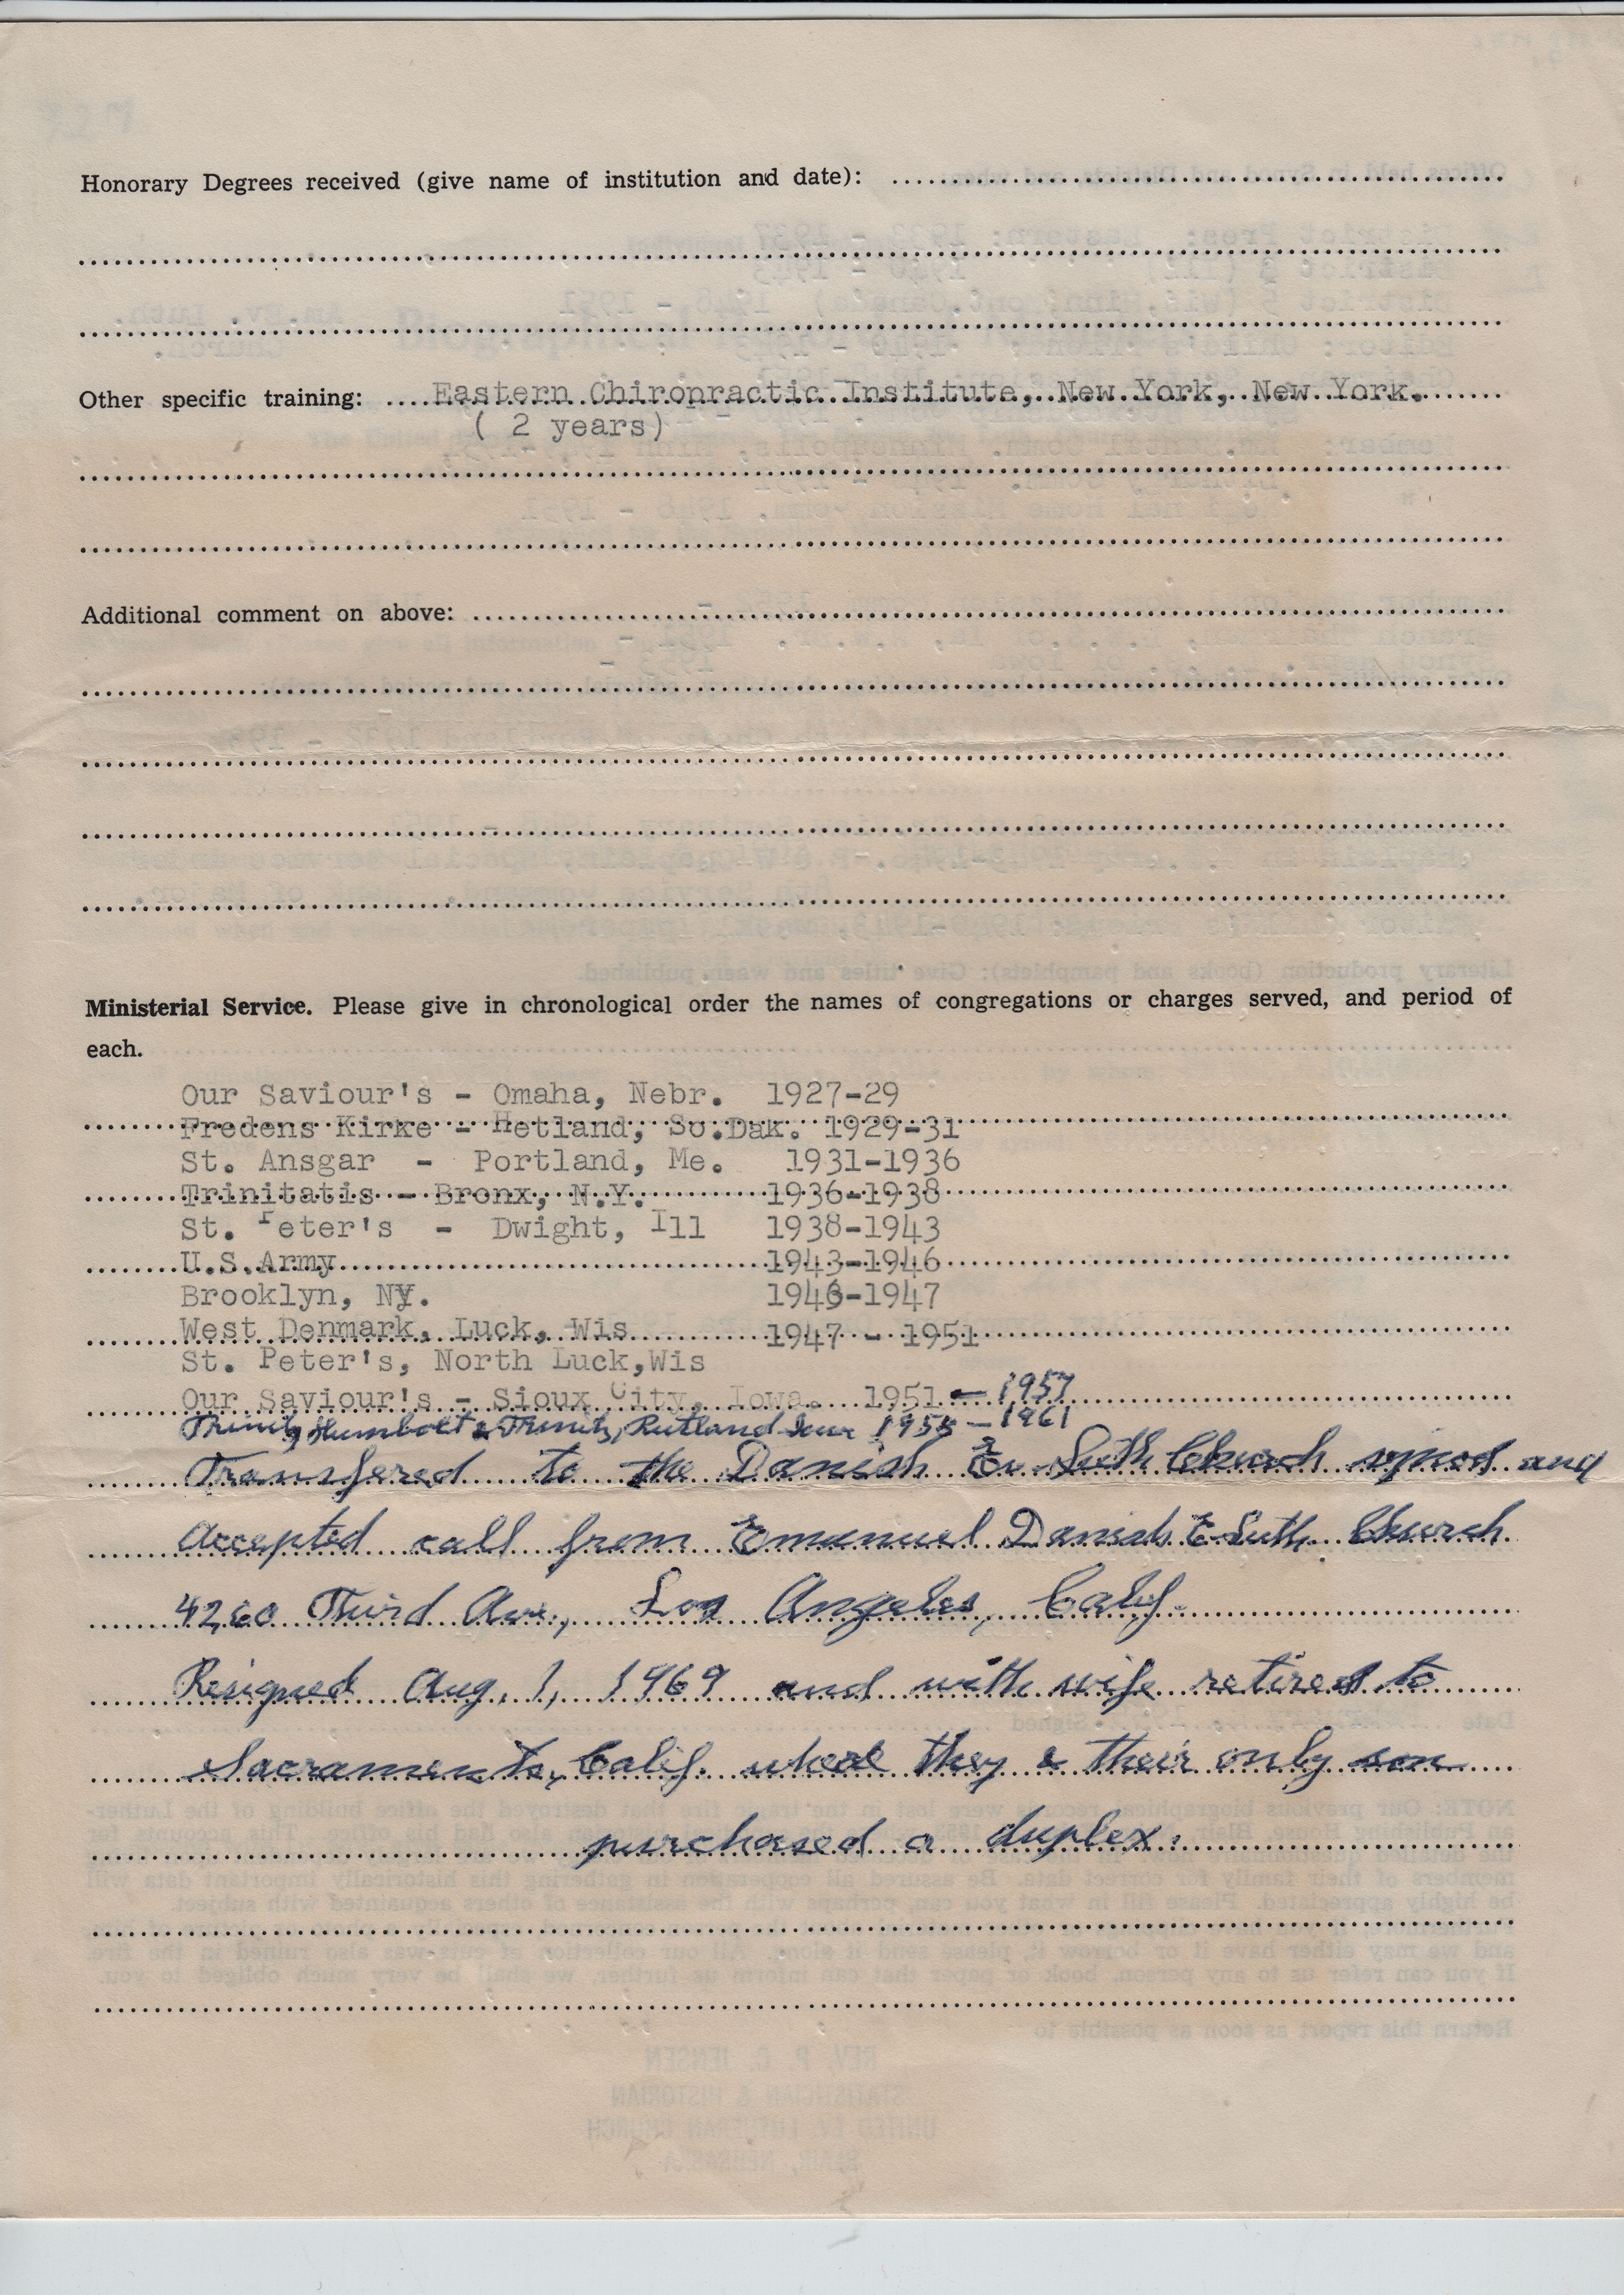 Honorary Degrees received (give name of institution and date):
Other specific training: Eastern Chiropractic Institute, New York, New York.
( 2 years)
Additional comment on above:
Ministerial Service. Please give in chronological order the names of congregations or charges served, and period of
each.
Our Saviour's - Omaha, Nebr. 1927-29
Fredens Kirke - Hetland, So.Dak. 1929-31
St. Ansgar - Portland, Me. 1931-1936
Trinitatis - Bronx, N.Y. 1936-1938
St. Peter's - Dwight, Ill 1938-1943
U.S.Army 1943-1946
Brooklyn, NY. 1946-1947
West Denmark, Luck, Wis 1947 - 1951
St. Peter's, North Luck,Wis
Our Saviour's - Sioux City, Iowa. 1951 - 1957
Trinity Humbolt & Trinity, Rutland 1958 - 1961
Transfered to the Danish Ev Luth Church synod and
accepted call from Emanuel Danish E Luth Church
4260 Third Ave., Los Angeles, Calif.
Resigned Aug. 1, 1969 and with wife retired to
Sacramento, Calif. where they & their only son
purchased a duplex.